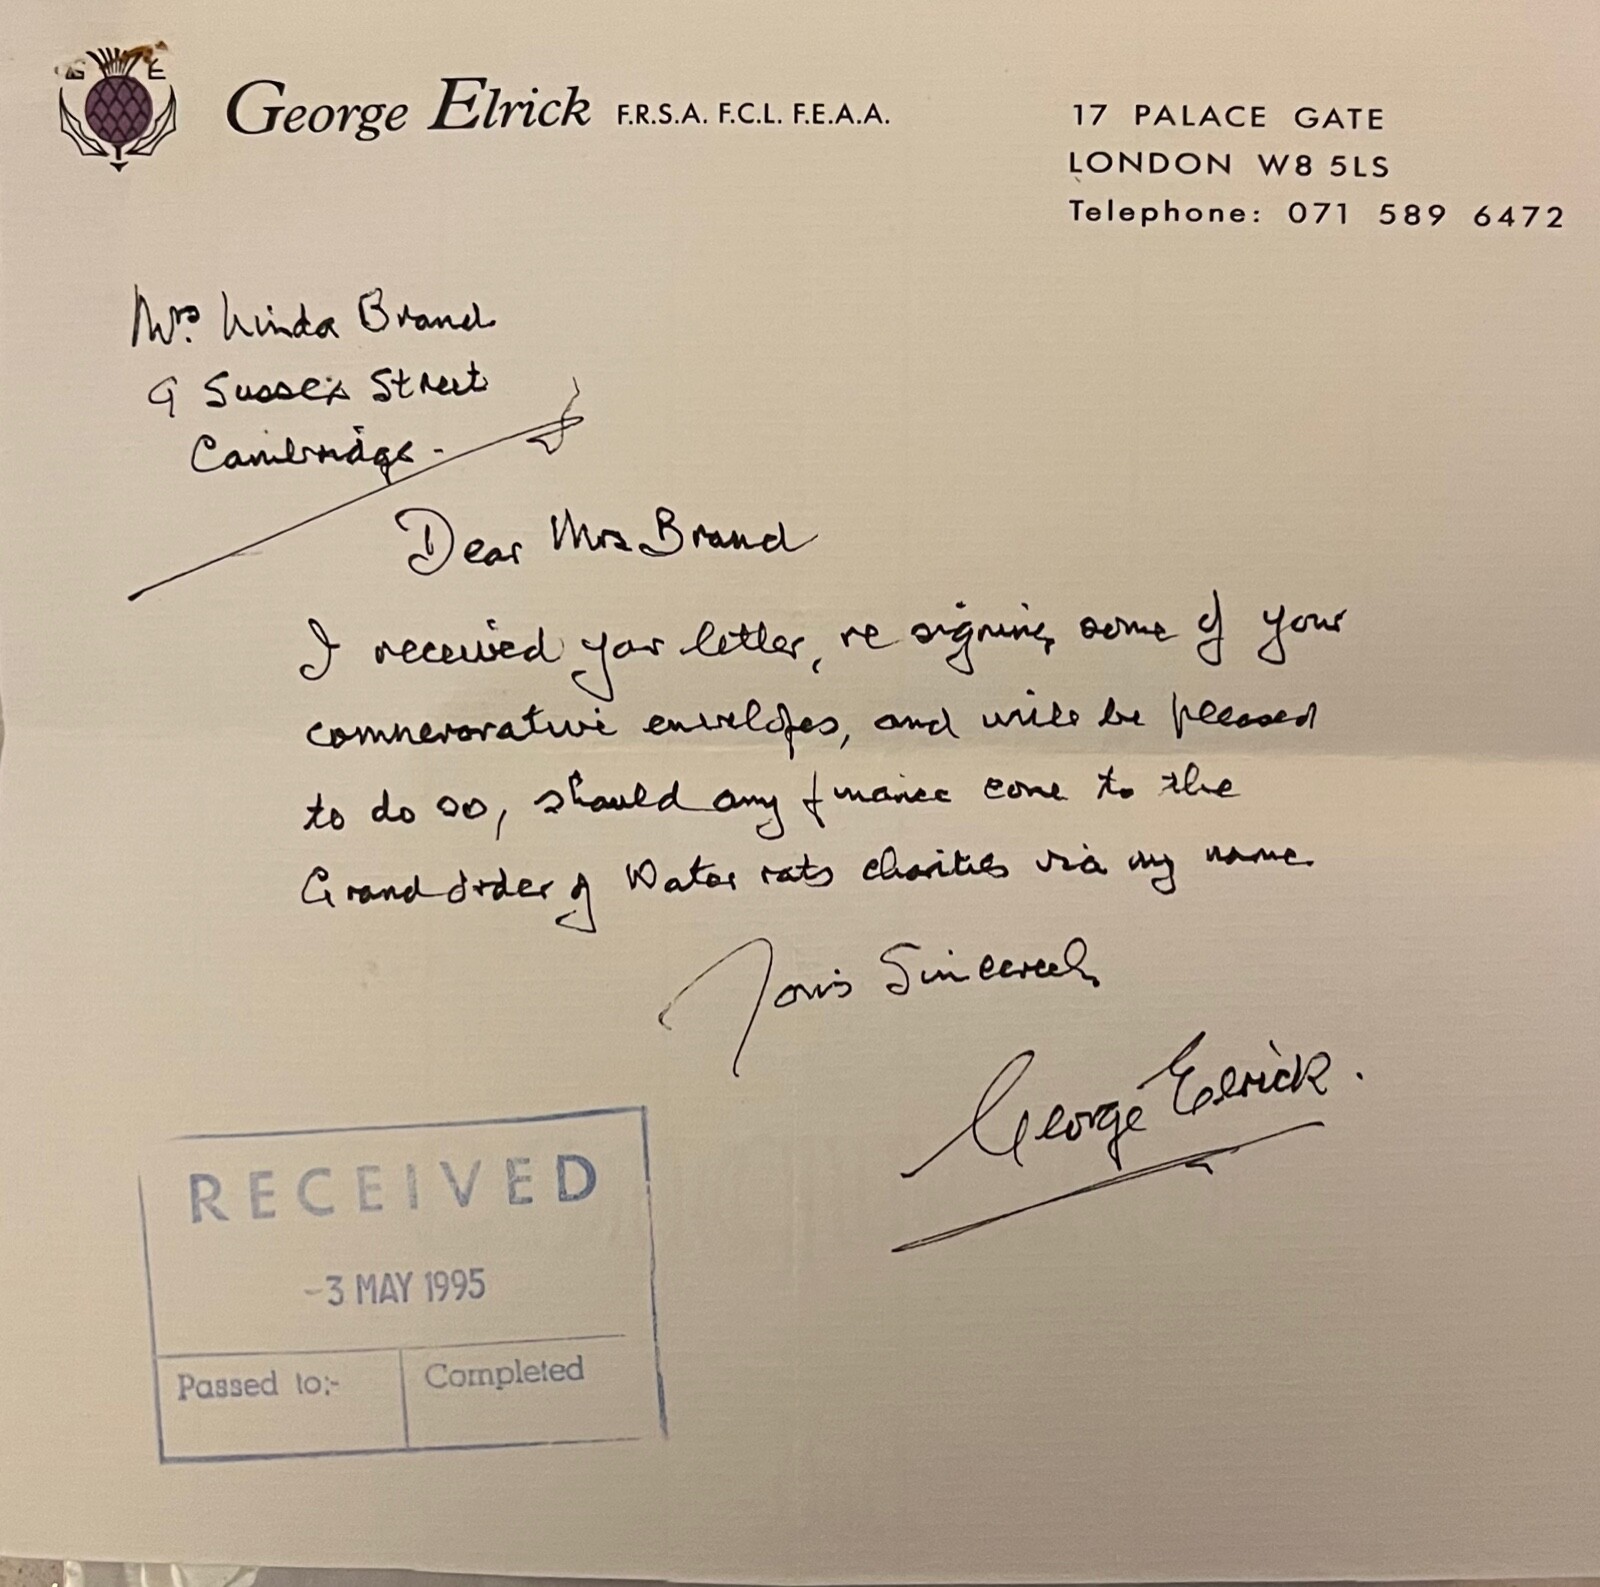 G E
George Elrick F.R.S.A. F.C.L. F.E.A.A.
17 PALACE GATE
LONDON W8 5LS
Telephone: 071 589 6472
Mrs. Linda Brand
9 Sussex Street
Cambridge.
Dear Mrs Brand
I received your letter, re signing some of your
commerorative envelopes, and will be pleased
to do so, should any finance come to the
Grand order of Water rats charities via my name
Yours Sincerely
George Elrick.
RECEIVED
-3 MAY 1995
Passed to:-
Completed